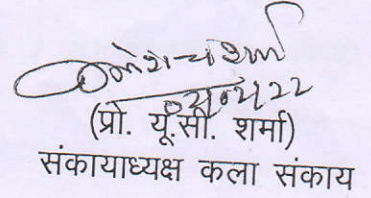 (प्रो. यू.सी. शर्मा)
संकायाध्यक्ष कला संकाय